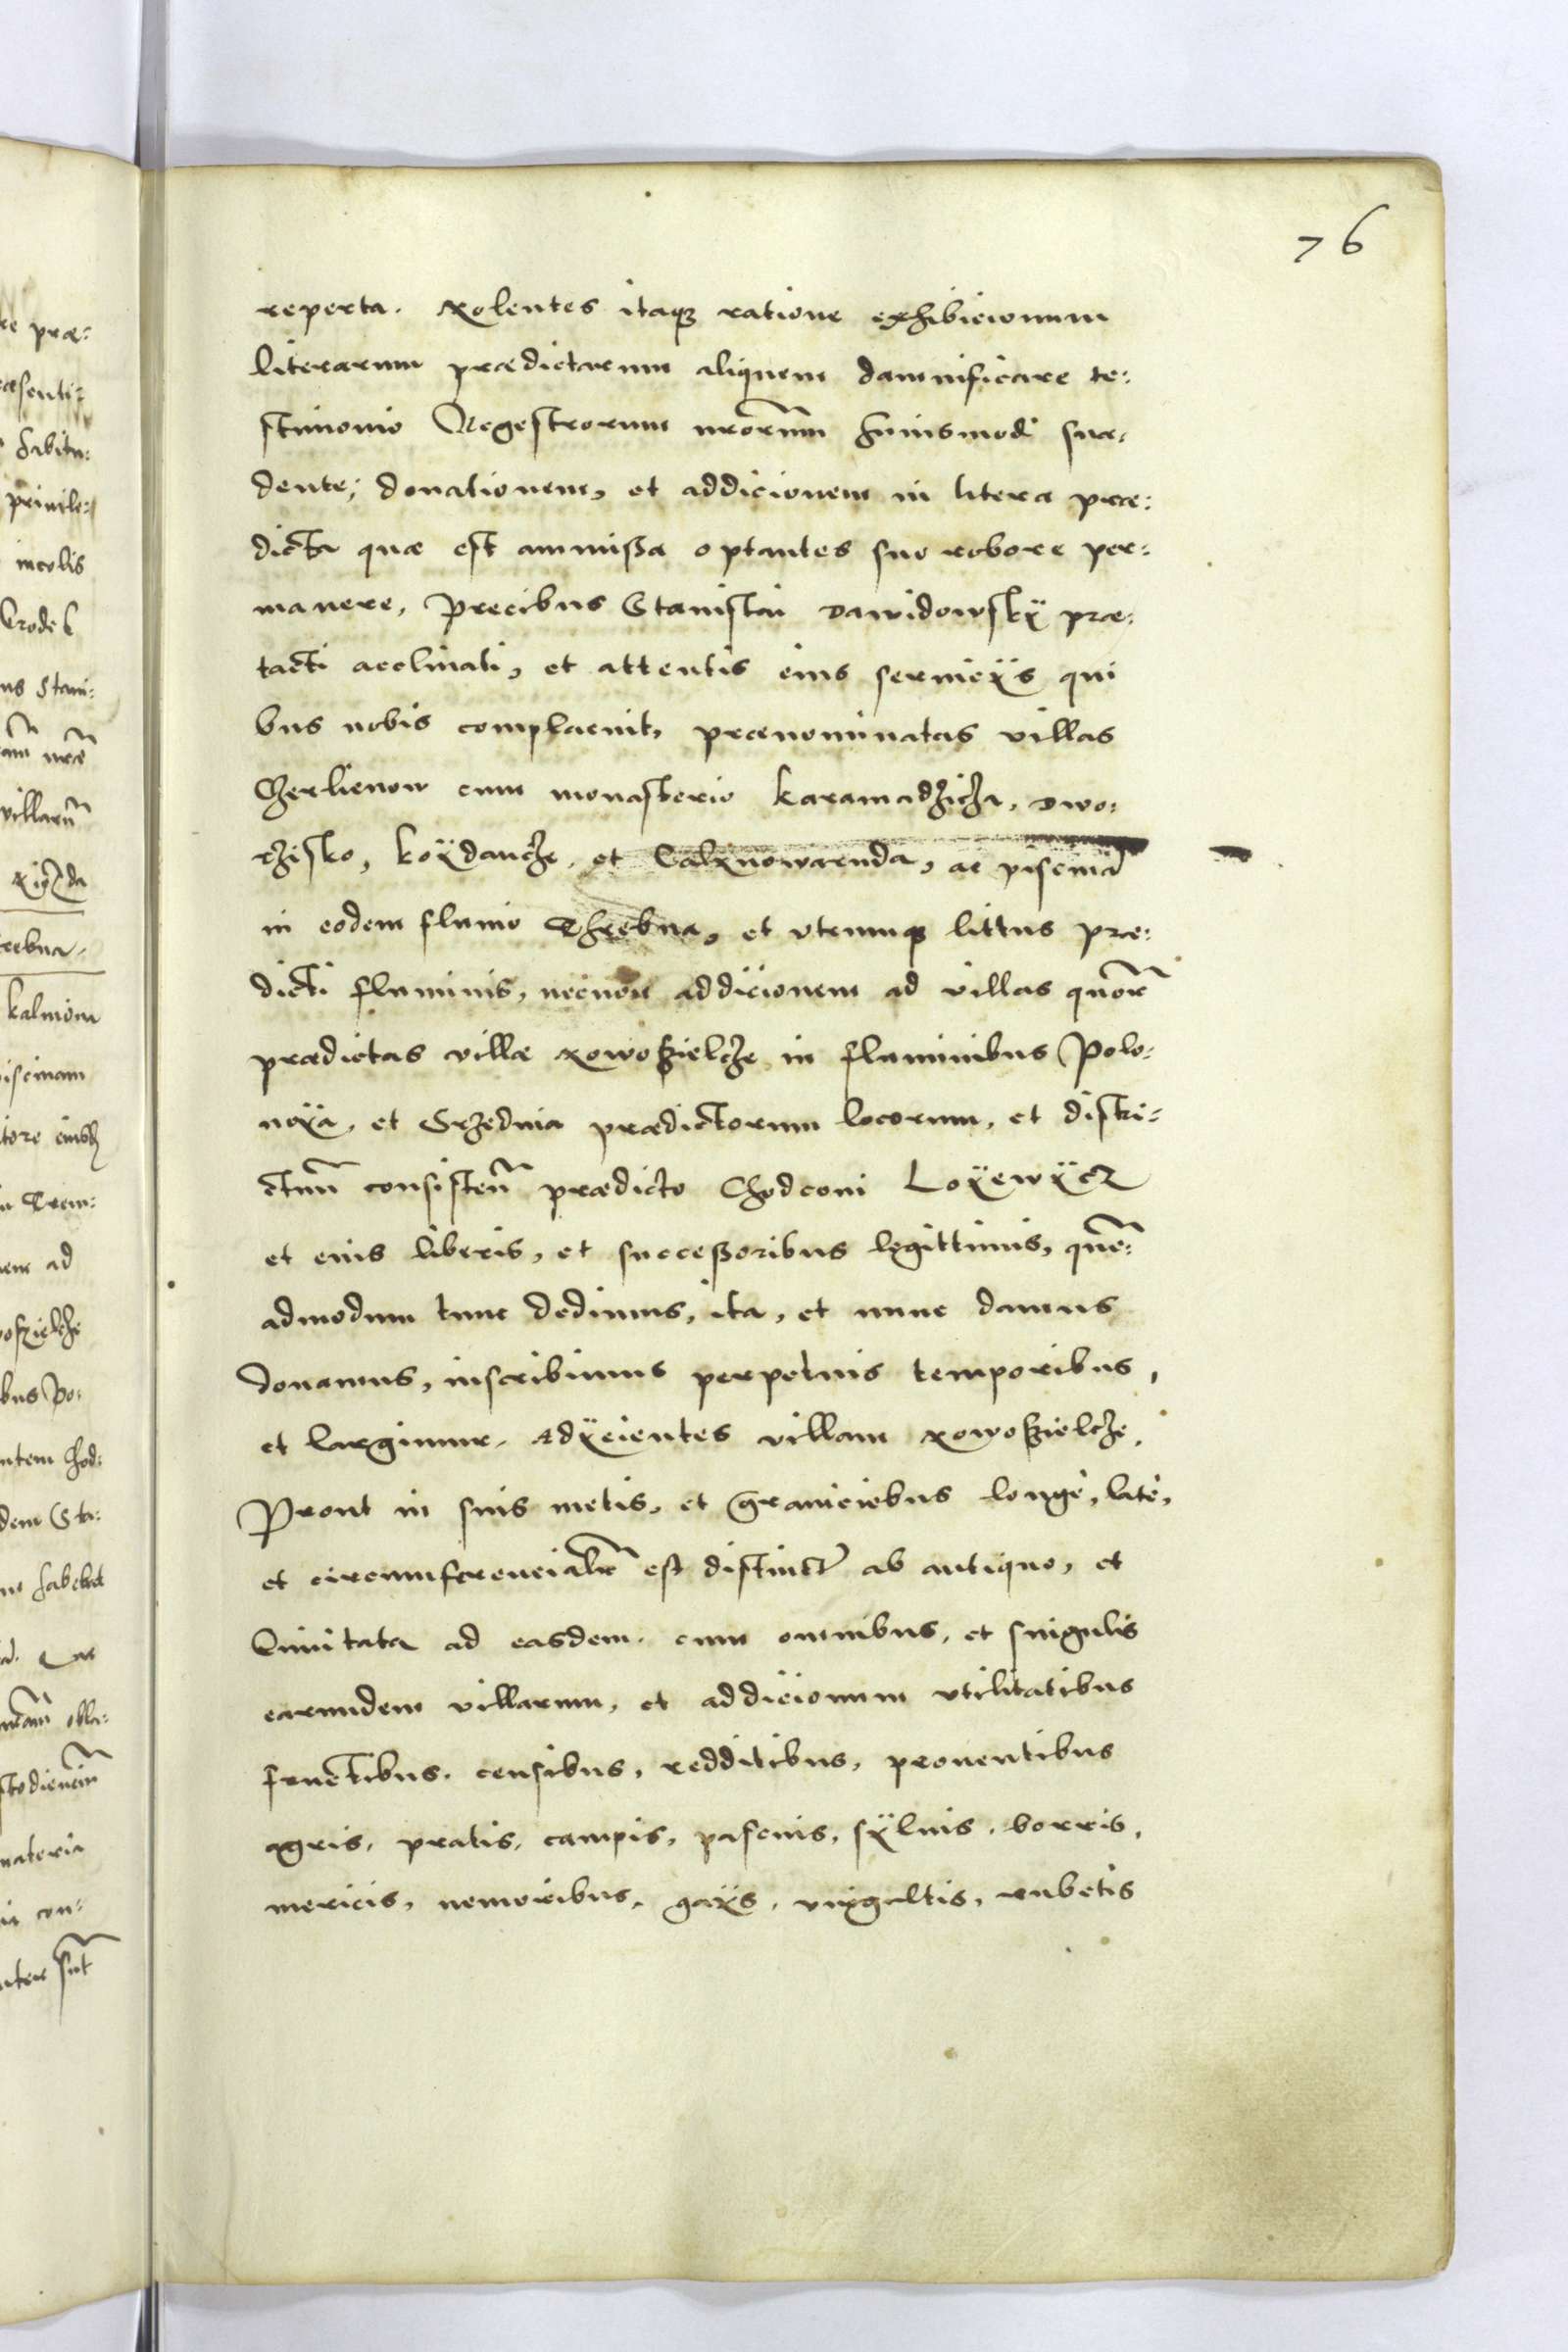 76
reperta. Nolentes itaq3 ratione exhibicionum
literarum prædictarum aliquem damnificare te:
stimonio Regestrorum nrorum huiusmodi sua:
dente; donationem, et addicionem in litera præ:
dicta quæ est ammissa optantes suo robore per:
manere, Precibus Stanislai Dawidowskÿ præ:
tacti acclinati, et attentis eius seruicÿs qui
bus nobis complacuit, prænominatas villas
Cherlienow cum monasterio Karamadzicha, Dwo:
rzisko, Koÿdancze, et Calxnowrenda, ac piscina
in eodem fluuio Threbna, et vtrumq3 littus præ:
dicti fluminis, necnon addicionem ad villas quor
prædictas villæ Nowoszielcze in fluminibus Polo:
noÿa, et Srzednia prædictorum locorum, et distri:
ctuu consisten prædicto Chodconi Loÿewÿcz
et eius liberis, et successoribus legittimis, que:
admodum tunc dedimus, ita, et nunc damus
donamus, inscribimus perpetuis temporibus,
et largimur. Adÿcientes villam Nowoszielcze,
Prout in suis metis, et graniciebus longè, latè,
et circumferencialr est distinct ab antiquo, et
limitata ad easdem. cum omnibus, et singulis
earundem villarum, et addicionum vtilitatibus
fructibus. censibus, redditibus, prouentibus
agris, pratis, campis, pascuis, sÿluis, borris,
mericis, nemoribus, gaÿs, virgultis, rubetis